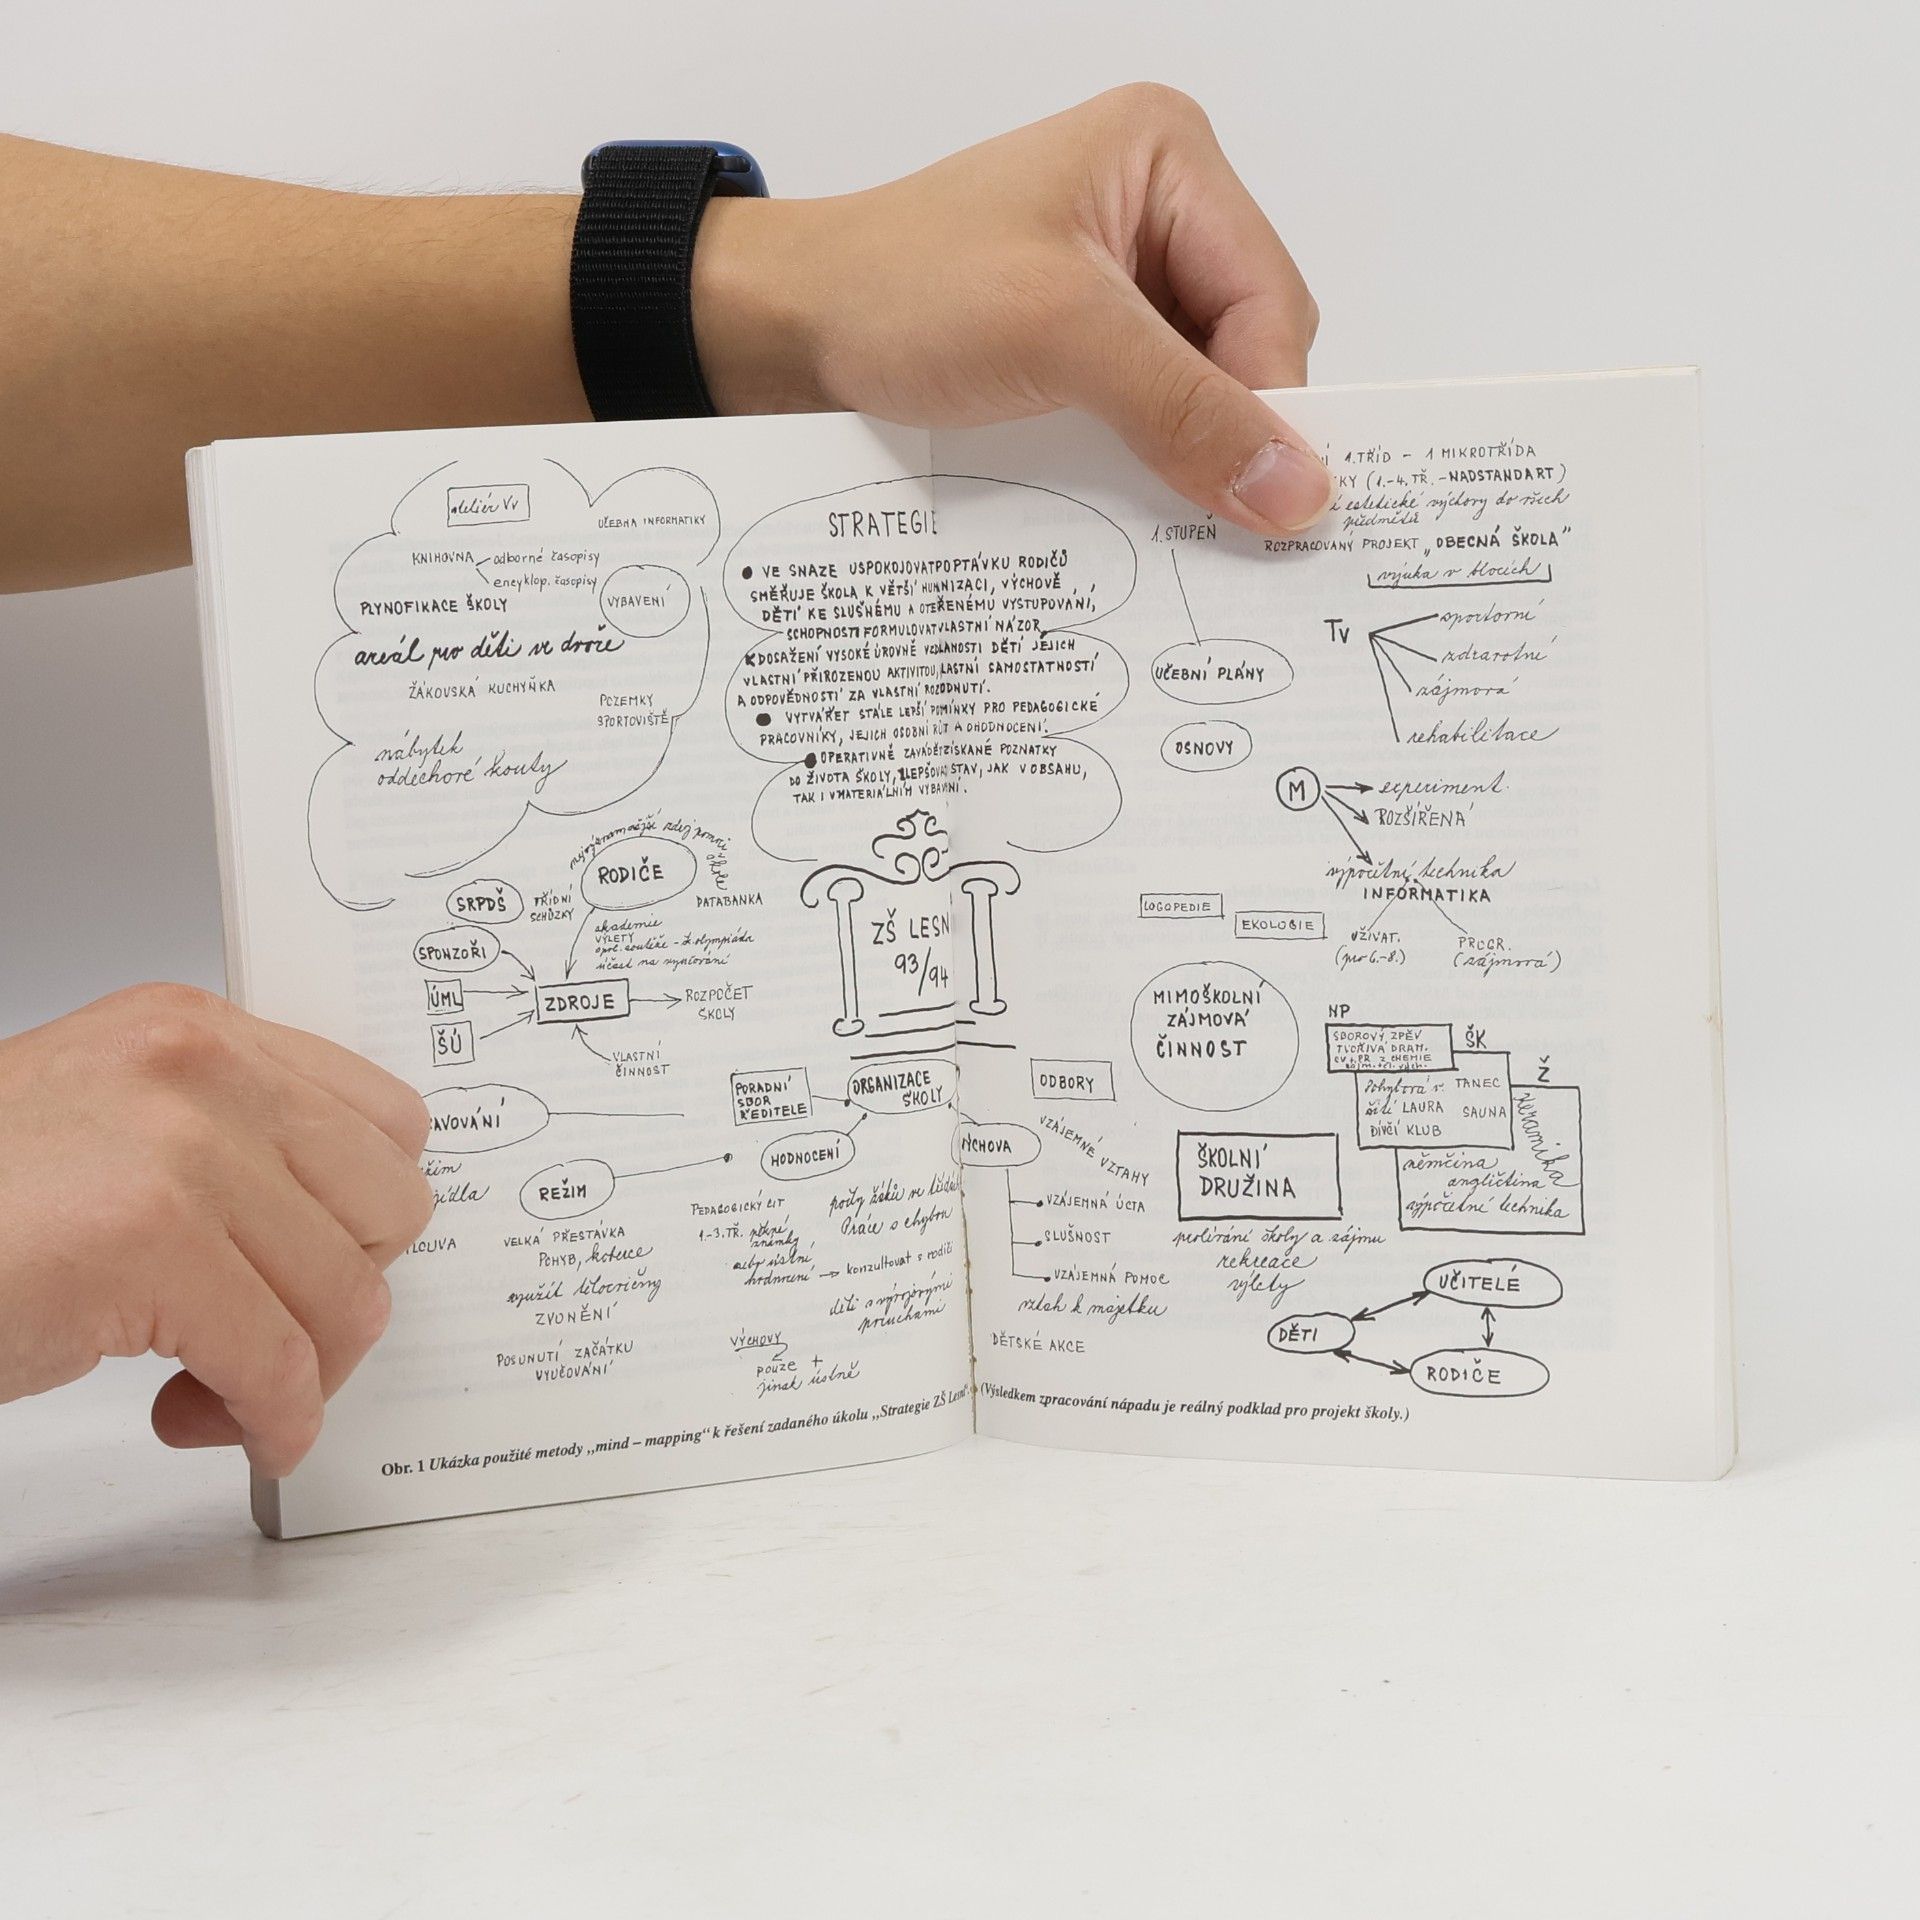 ateliér Vv
UČEBNA INFORMATIKY
KNIHOVNA
odborné časopisy
encyklop. časopisy
VYBAVENÍ
PLYNOFIKACE ŠKOLY
areál pro děti ve dvoře
ŽÁKOVSKÁ KUCHYŇKA
POZEMKY
SPORTOVIŠTĚ
nábytek
oddechové kouty
STRATEGIE
● VE SNAZE USPOKOJOVAT POPTÁVKU RODIČŮ
SMĚŘUJE ŠKOLA K VĚTŠÍ HUMNIZACI, VÝCHOVĚ
DĚTÍ KE SLUŠNÉMU A OTEŘENÉMU VYSTUPOVÁNÍ,
SCHOPNOSTI FORMULOVAT VLASTNÍ NÁZOR,
K DOSAŽENÍ VYSOKÉ ÚROVNĚ VZDLANOSTI DĚTÍ JEJICH
VLASTNÍ PŘIROZENOU AKTIVITOU, LASTNÍ SAMOSTATNOSTÍ
A ODPOVĚDNOSTÍ ZA VLASTNÍ ROZODNUTÍ.
● VYTVÁŘET STÁLE LEPŠÍ POMÍNKY PRO PEDAGOGICKÉ
PRACOVNÍKY, JEJICH OSOBNÍ RŮT A OHODNOCENÍ.
● OPERATIVNĚ ZAVÁDĚT ZÍSKANÉ POZNATKY
DO ŽIVOTA ŠKOLY, ZLEPŠOVAT STAV, JAK V OBSAHU,
TAK I V MATERIÁLNÍM VYBAVENÍ.
1. TŘÍD - 1 MIKROTŘÍDA
KY (1.-4. TŘ. - NADSTANDART)
estetické výchovy do všech
předmětů
1. STUPEŇ
ROZPRACOVANÝ PROJEKT „OBECNÁ ŠKOLA"
výuka v blocích
UČEBNÍ PLÁNY
OSNOVY
Tv
sportovní
zdravotní
zájmová
rehabilitace
M
experiment.
ROZŠÍŘENÁ
výpočetní technika
INFORMATIKA
UŽIVAT.
(pro 6.-8.)
PROGR.
(zájmová)
LOGOPEDIE
EKOLOGIE
nejvýznamnější zdroj pomoci škole
RODIČE
SRPDŠ
TŘÍDNÍ
SCHŮZKY
DATABANKA
akademie
VÝLETY
spol. soutěže - olympiáda
účast na vyučování
SPONZOŘI
ÚML
ŠÚ
ZDROJE
ROZPOČET
ŠKOLY
VLASTNÍ
ČINNOST
ZŠ LESN
93/94
MIMOŠKOLNÍ
ZÁJMOVÁ
ČINNOST
NP
SBOROVÝ ZPĚV
TVOŘIVÁ DRAM.
CV. PR. Z CHEMIE
ŠK
Pohybová v.
TANEC
LAURA
SAUNA
DÍVČÍ KLUB
Ž
keramika
němčina
angličtina
výpočetní technika
AVOVÁNÍ
PORADNÍ
SBOR
ŘEDITELE
ORGANIZACE
ŠKOLY
ODBORY
HODNOCENÍ
ÝCHOVA
VZÁJEMNÉ VZTAHY
VZÁJEMNÁ ÚCTA
SLUŠNOST
VZÁJEMNÁ POMOC
vztah k majetku
DĚTSKÉ AKCE
ŠKOLNÍ
DRUŽINA
prolínání školy a zájmu
rekreace
výlety
REŽIM
VELKÁ PŘESTÁVKA
POHYB, koterce
využít tělocvičny
ZVONĚNÍ
POSUNUTÍ ZAČÁTKU
VYUČOVÁNÍ
jídla
PEDAGOGICKÝ CIT
1.-3. TŘ.
známky
nebo ústní
hodnocení → konzultovat s rodiči
počty žáků ve třídě
Práce s chybou
děti s vývojovými
poruchami
VÝCHOVY
pouze +
jinak ústně
UČITELÉ
DĚTI
RODIČE
Obr. 1 Ukázka použité metody „mind – mapping“ k řešení zadaného úkolu „Strategie ZŠ Lesní“. (Výsledkem zpracování nápadu je reálný podklad pro projekt školy.)